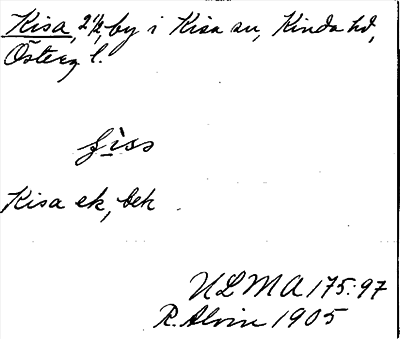 Kisa, 2½, by i Kisa sn, Kinda hd,
Österg l.
Kisa ek, bek
ULMA 175:97
R. Alvin 1905